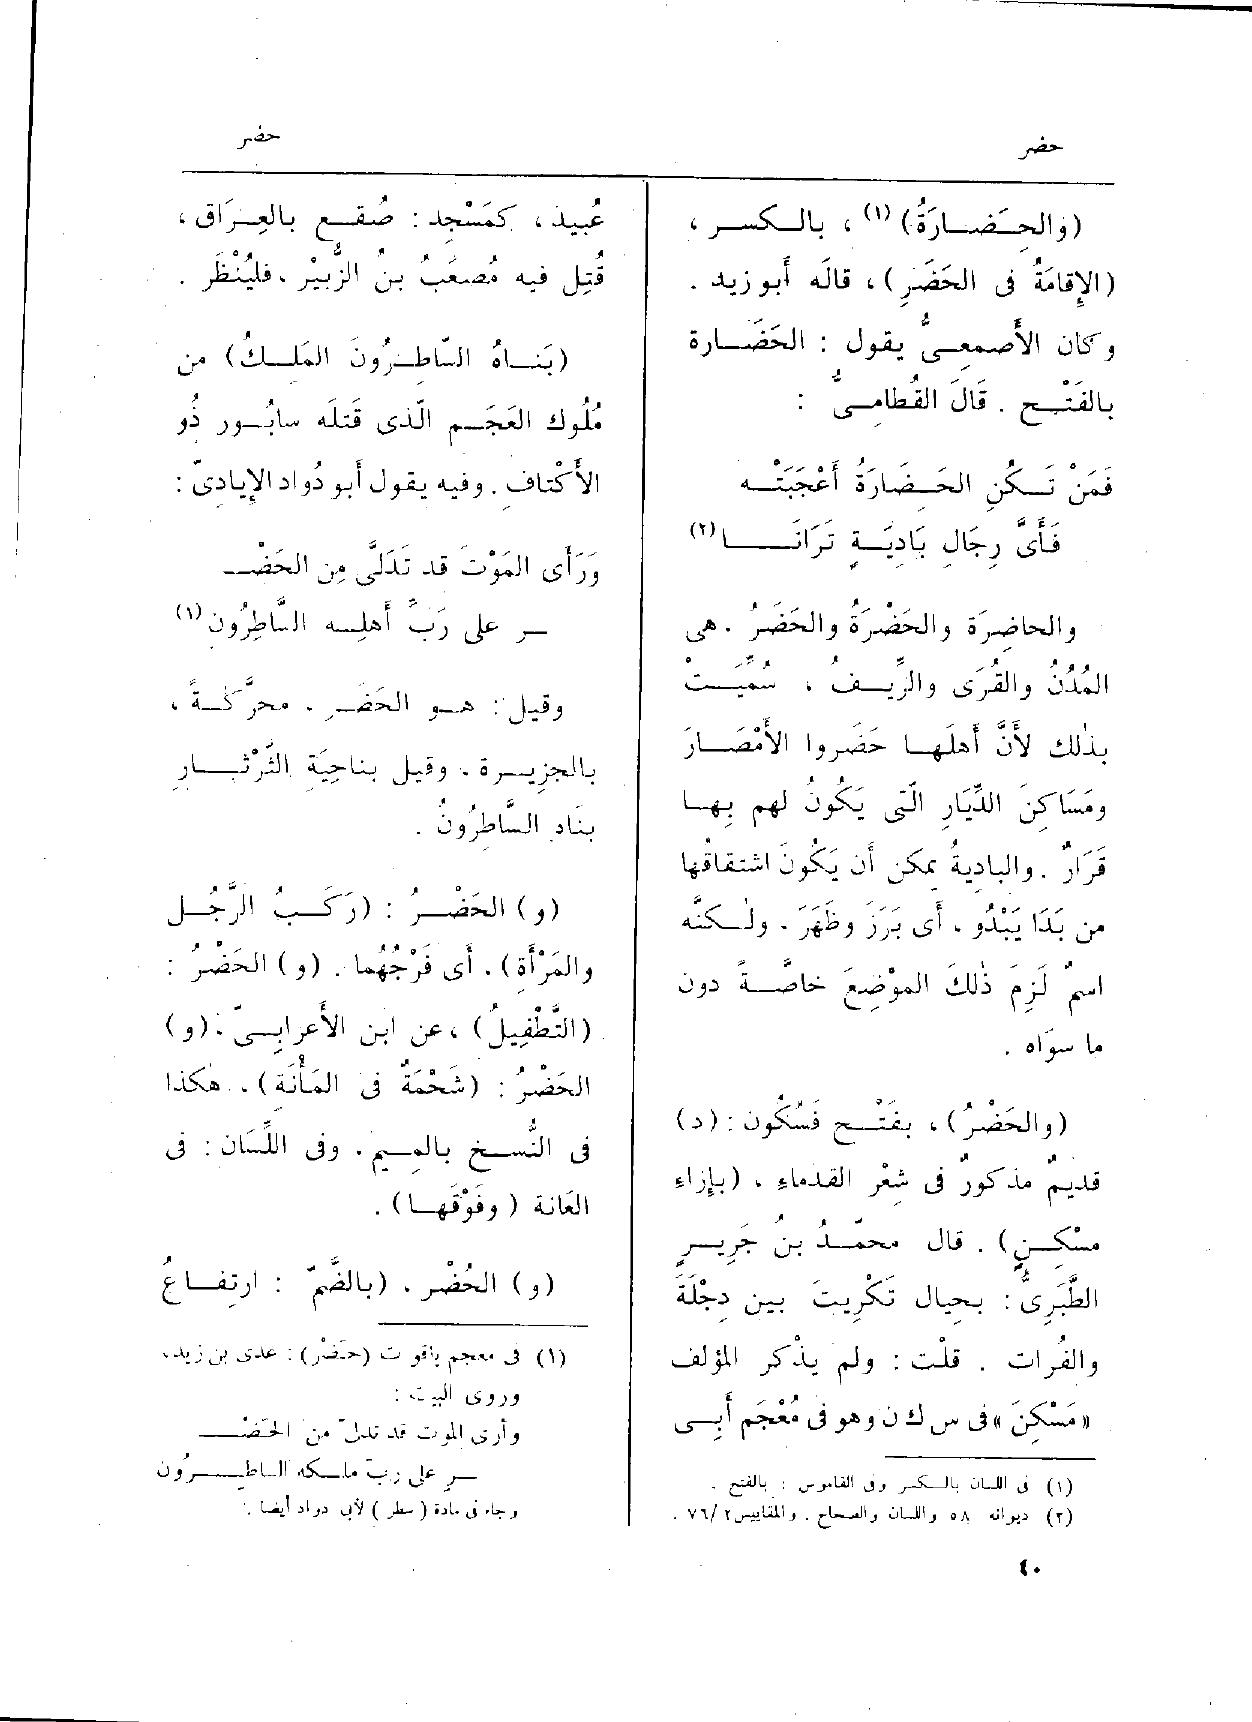 حضر
حضر
(والحِـضَـارَةُ) (١) ، بالـكسـر ،
(الإِقامَةُ فى الحَضَرِ) ، قالَه أَبو زيد .
وكان الأَصمعـىُّ يقول : الحَضَـارة
بالفَتْـح . قَالَ القُطامـىُّ :
فَمَنْ تَـكُنِ الحَـضَارَةُ أَعْجَبَتْـه
فَـأَىَّ رِجَالِ بَادِيَـةٍ تَرَانَـــا (٢)
والحاضِرَة والحَضْرَةُ والحَضَرُ . هى
المُدُنُ والقُرَى والرِّيـفُ ، سُمِّيَـتْ
بذٰلك لأَنَّ أَهلَهـا حَضَروا الأَمْصَـارَ
ومَسَاكِنَ الدِّيَارِ الَّتى يَكُونُ لهم بِهـا
قَرَارٌ . والبادِيةُ يمكن أَن يَكُونَ اشتقاقُها
من بَدَا يَبْدُو ، أَى بَرَزَ وظَهَرَ . ولٰـكنَّه
اسمٌ لَزِمَ ذٰلكَ الموْضِعَ خاصَّـةً دون
ما سوَاه .
(والحَضْرُ) ، بفَتْـح فَسُكُون : (د)
قديمٌ مذكورٌ فى شِعْر القدماءِ ، (بإِزاءِ
مسْكِـنٍ) . قال محمّـدُ بنُ جَرِيـرٍ
الطَّبَرِىُّ : بحيال تَكْرِيتَ بين دِجْلَةَ
والفُرات . قلْت : ولم يذْكر المؤلف
«مَسْكِنَ» فى س ك ن وهو فى مُعْجَم أَبـى
(١) فى اللسان بالـكسر وفى القاموس : بالفتح .
(٢) ديوانه ٥٨ واللسان والصحاح . والمقاييس ٢ /٧٦ .
عُبيد ، كمَسْجِد : صُقـع بالعِـرَاق ،
قُتِل فيه مُصعَبُ بنُ الزُّبيْر ، فليُنْظَر .
(بَنَـاهُ السّاطِـرُونَ المَلـكُ) من
مُلُوك العَجَـم الّذى قَتَلَه سابُـور ذُو
الأَكْتاف . وفيه يقول أَبو دُواد الإِيادىّ :
وَرَأَى المَوْتَ قد تَدَلَّى مِن الحَضْـ
ـر على رَبِّ أَهلِـه السَّاطِرُون (١)
وقيل : هـو الحَضَـر . محرَّكـةً ،
بالجزِيـرة . وقيـل بناحِيَةِ الثَّرْثـارِ
بنَاه السَّاطِرُونُ .
(و) الحَضْـرُ : (رَكَـبُ الرَّجُـلِ
والمَرْأَةِ) . أَى فَرْجُهُما . (و) الحَضْرُ :
(التَّطْفِيلُ) ، عن ابن الأَعرابـىّ . (و)
الحَضْرُ : (شَحْمَةٌ فى المَأْنَة) . هكذا
فى النُّسـخ بالمِـيم . وفى اللِّسَان : فى
العَانة ( وفَوْقَهـا) .
(و) الحُضْر . (بالضَّمّ : ارتِفـاعُ
(١) فى معجم ياقوت (حَضْر) : عدى بن زيد ،
وروى البيت :
وأرى الموت قد تدلىّ من الحَضْـ
ـرِ على ربّ ملـكه السـاطـــرُون
وجاء فى مادة ( سطر ) لأبى دواد أيضا .
٤٠